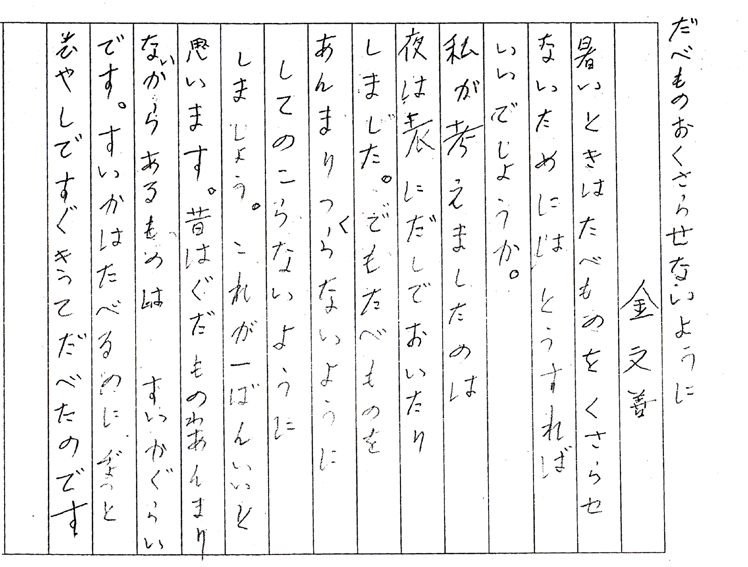 だべものおくさらせないように
金文善
暑いときはたべものをくさらせ
ないためにはとうすれば
いいでしょうか。
私が考えましたのは
夜は表にだしでおいたり
しまじた。でもたべものを
あんまりつくらないように
してのこらないように
しましょう。これが一ばんいいと
思います。昔はぐだものわあんまり
ないからあるものは すいかぐらい
です。すいかはたべるめに
やしですぐきってだべたのです